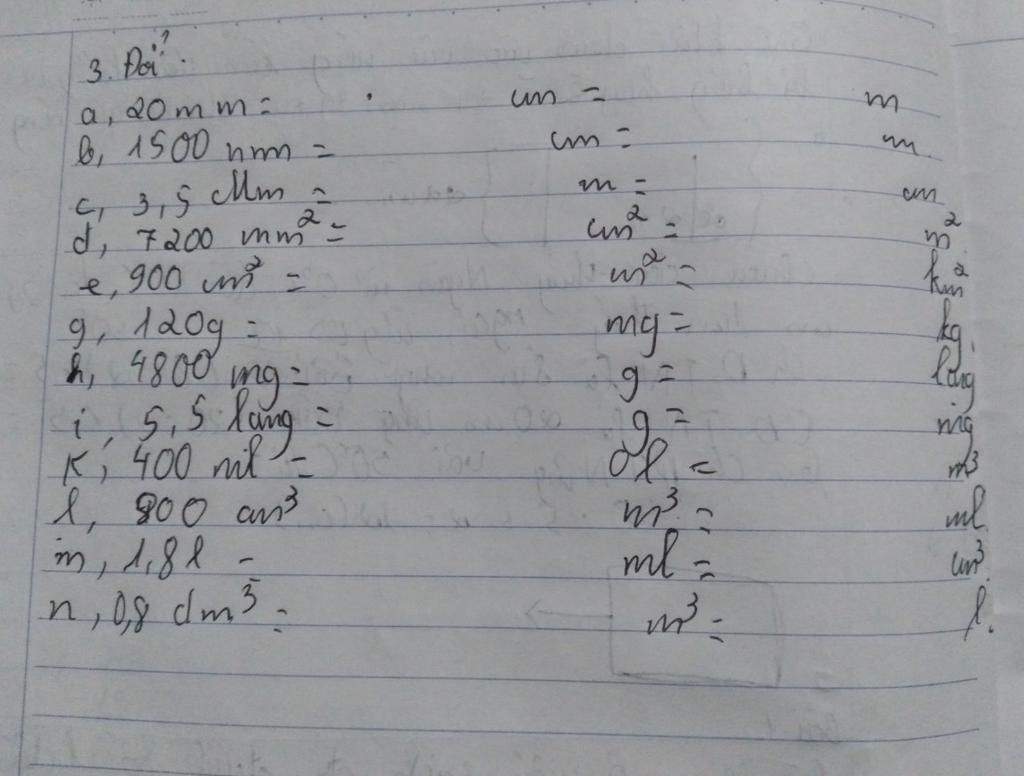 3. Đổi:
a, 20mm = cm = m
b, 1500 nm = cm = m
c, 3,5 Mm = m = cm
d, 7200 mm² = cm² = m²
e, 900 cm² = m² = km²
g, 120g = mg = kg
h, 4800 mg = g = lạng
i, 5,5 lạng = g = mg
k, 400 ml = l = m³
l, 800 cm³ m³ = ml
m, 1,8l = ml = cm³
n, 0,8 dm³ = m³ = l.